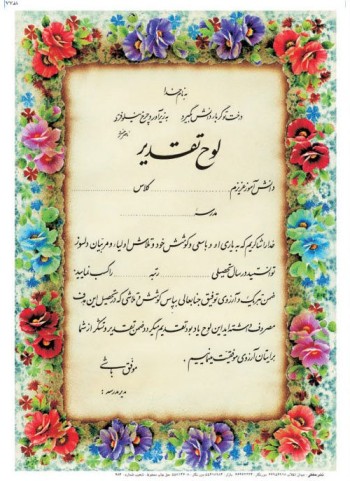 ۷۷۵۸
به نام خدا
درخت تو گر بار دانش بگیرد به زیر آوری چرخ نیلوفری را
ناصر خسرو
لوح تقدیر
دانش آموز عزیزم ........ کلاس ........
مدرسه ........
خدا را شاکریم که به یاری او و با سعی و کوشش خود و تلاش اولیاء و مربیان دلسوز
توانستید در سال تحصیلی ........ رتبه ........ را کسب نمایید.
ضمن تبریک و آرزوی توفیق جنابعالی بپاس کوشش و تلاشی که در تحصیل این هدف
مصروف داشته‌اید این لوح یادبود تقدیم میگردد ضمن تقدیر و تشکر از شما
برایتان آرزوی موفقیت مینماییم.
موفق باشی
مدیر مدرسه: